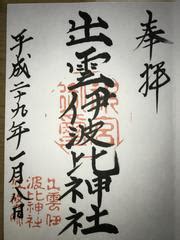 奉拝
出雲伊波比神社
平成二十九年一月八日
出雲伊
波比神